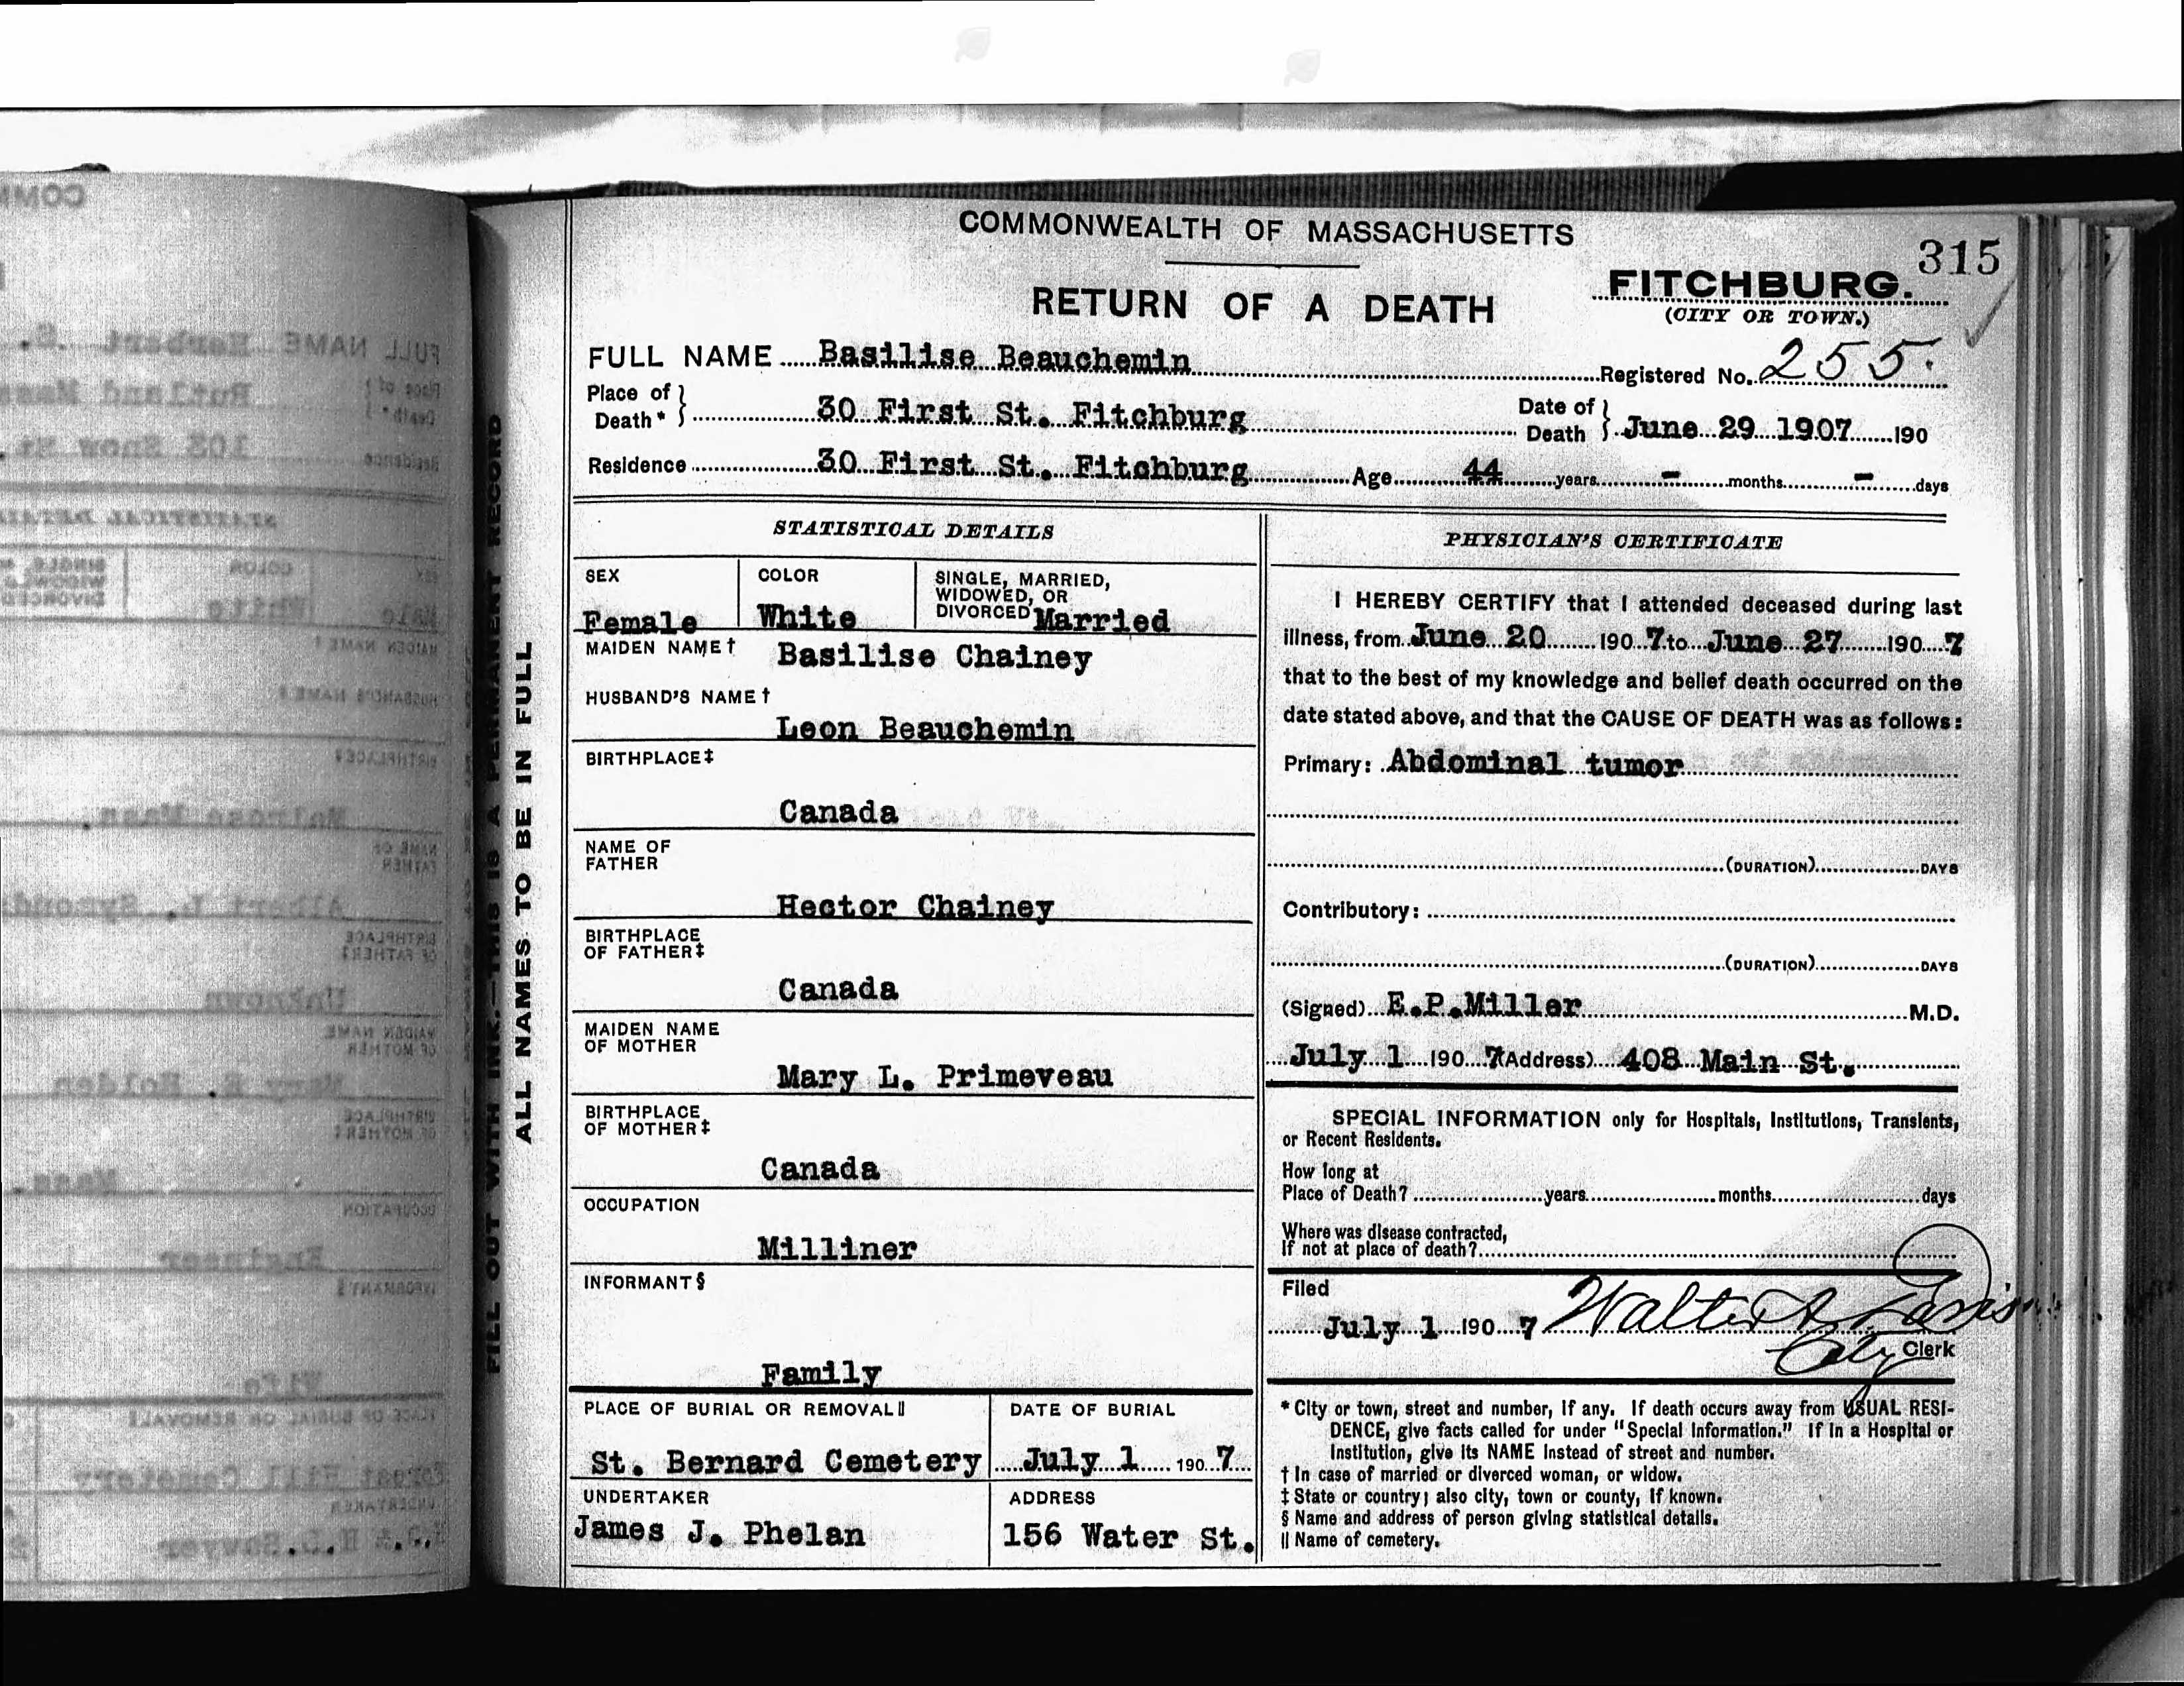 COMMONWEALTH OF MASSACHUSETTS
315
RETURN OF A DEATH
FITCHBURG.
(CITY OR TOWN.)
FULL NAME Basilise Beauchemin Registered No. 255.
Place of Death* } 30 First St. Fitchburg Date of Death } June 29 1907 190
Residence 30 First St. Fitchburg Age 44 years - months - days
FILL OUT WITH INK.—THIS IS A PERMANENT RECORD
ALL NAMES TO BE IN FULL
STATISTICAL DETAILS
SEX
Female
COLOR
White
SINGLE, MARRIED,
WIDOWED, OR
DIVORCED Married
MAIDEN NAME† Basilise Chainey
HUSBAND'S NAME†
Leon Beauchemin
BIRTHPLACE‡
Canada
NAME OF
FATHER
Hector Chainey
BIRTHPLACE
OF FATHER‡
Canada
MAIDEN NAME
OF MOTHER
Mary L. Primeveau
BIRTHPLACE
OF MOTHER‡
Canada
OCCUPATION
Milliner
INFORMANT§
Family
PLACE OF BURIAL OR REMOVAL||
St. Bernard Cemetery
DATE OF BURIAL
July 1 190 7
UNDERTAKER
James J. Phelan
ADDRESS
156 Water St.
PHYSICIAN'S CERTIFICATE
I HEREBY CERTIFY that I attended deceased during last
illness, from June 20 190 7 to June 27 190 7
that to the best of my knowledge and belief death occurred on the
date stated above, and that the CAUSE OF DEATH was as follows:
Primary: Abdominal tumor
(DURATION) DAYS
Contributory:
(DURATION) DAYS
(Signed) E.P.Miller M.D.
July 1 190 7 (Address) 408 Main St.
SPECIAL INFORMATION only for Hospitals, Institutions, Transients,
or Recent Residents.
How long at
Place of Death? years months days
Where was disease contracted,
If not at place of death?
Filed
July 1 190 7 Walter A. Davis
City Clerk
* City or town, street and number, if any. If death occurs away from USUAL RESI-
DENCE, give facts called for under "Special Information." If in a Hospital or
Institution, give its NAME instead of street and number.
† In case of married or divorced woman, or widow.
‡ State or country; also city, town or county, if known.
§ Name and address of person giving statistical details.
|| Name of cemetery.